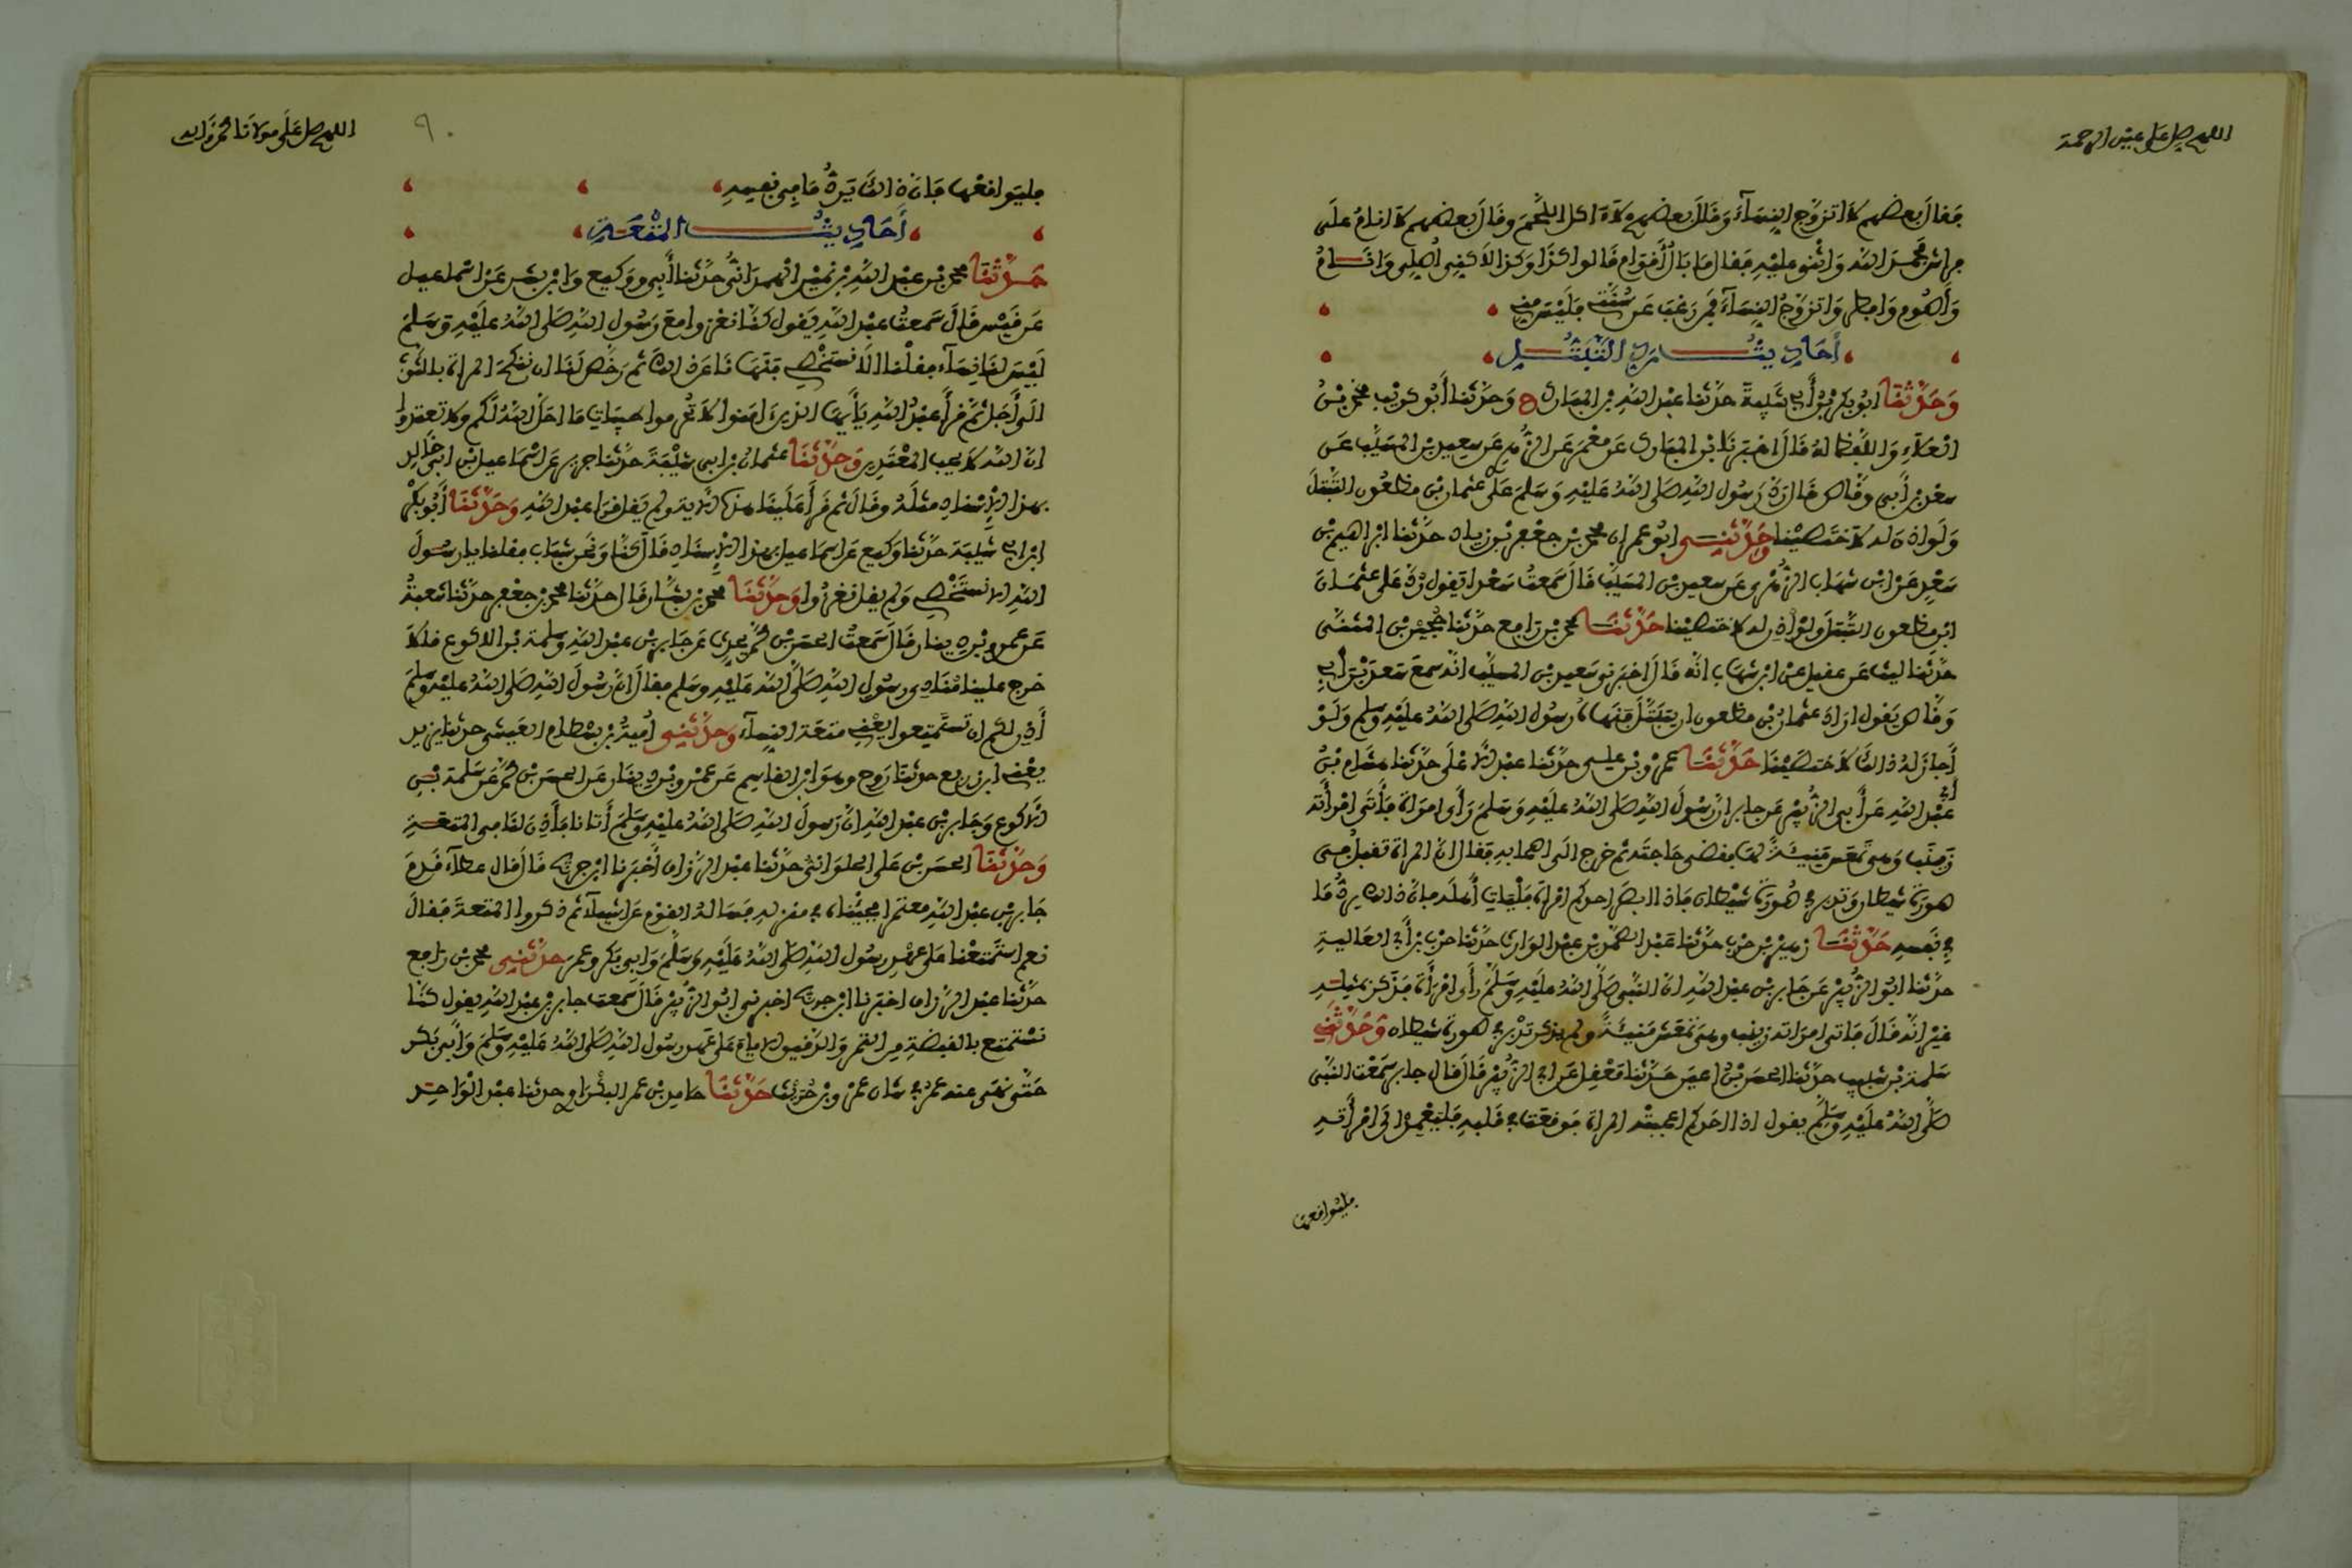 اللهم صل على عين الرحمة
فقال بعضهم لا اتزوج النساء وقال بعضهم لا ءاكل اللحم وقال بعضهم لا انام على
فراش فحمد الله واثنى عليه فقال ما بال أقوام قالوا كذا وكذا لاكني أصلي وانام
وأصوم وافطر واتزوج النساء فمن رغب عن سنتي فليس مني
أحاديث رد التبتل
وحدثنا ابو بكر بن أبي شيبة حدثنا عبد الله بن المبارك ح وحدثنا أبو كريب محمد بن
العلاء واللفظ له قال اخبرنا ابن المبارك عن معمر عن الزهري عن سعيد بن المسيب عن
سعد بن أبي وقاص قال رد رسول الله صلى الله عليه وسلم على عثمان بن مظعون التبتل
ولو اذن له لاختصينا وحدثني ابو عمران محمد بن جعفر بن زياد حدثنا ابراهيم بن
سعد عن ابن شهاب الزهري عن سعيد بن المسيب قال سمعت سعدا يقول رد على عثمان
ابن مظعون التبتل ولو اذن له لاختصينا حدثنا محمد بن رافع حدثنا حجين بن المثنى
حدثنا ليث عن عقيل عن ابن شهاب انه قال اخبرني سعيد بن المسيب انه سمع سعد بن أبي
وقاص يقول اراد عثمان بن مظعون ان يتبتل فنهاه رسول الله صلى الله عليه وسلم ولو
أجاز له ذالك لاختصينا حدثنا عمرو بن علي حدثنا عبد الاعلى حدثنا هشام بن
أبي عبد الله عن أبي الزبير عن جابر ان رسول الله صلى الله عليه وسلم رأى امراة فأتى امرأته
زينب وهي تمعس منيئة لها فقضى حاجته ثم خرج الى اصحابه فقال ان المراة تقبل في
صورة شيطان وتدبر في صورة شيطان فاذا ابصر احدكم امراة فليات أهله فان ذالك يرد ما
في نفسه حدثنا زهير بن حرب حدثنا عبد الصمد بن عبد الوارث حدثنا حرب بن أبي العالية
حدثنا ابو الزبير عن جابر بن عبد الله ان النبي صلى الله عليه وسلم رأى امرأة فذكر بمثله
غير انه قال فاتى امراته زينب وهي تمعس منيئة ولم يذكر تدبر في صورة شيطان وحدثني
سلمة بن شبيب حدثنا الحسن بن اعين حدثنا معقل عن ابي الزبير قال قال جابر سمعت النبي
صلى الله عليه وسلم يقول اذا احدكم اعجبته المراة فوقعت في قلبه فليعمد الى امرأته
فليواقعها
اللهم صل على مولانا محمد وآله
٩٠
فليواقعها فان ذالك يرد ما في نفسه
أحاديث المتعة
حدثنا محمد بن عبد الله بن نمير الهمداني حدثنا أبي ووكيع وابن بشر عن اسماعيل
عن قيس قال سمعت عبد الله يقول كنا نغزوا مع رسول الله صلى الله عليه وسلم
ليس لنا نساء فقلنا الا نستخصي فنهانا عن ذالك ثم رخص لنا ان ننكح المراة بالثوب
الى أجل ثم قرأ عبد الله يأيها الذين امنوا لا تحرموا طيبات ما احل الله لكم ولا تعتدوا
ان الله لا يحب المعتدين وحدثنا عثمان بن ابي شيبة حدثنا جرير عن اسماعيل بن ابي خالد
بهذا الاسناد مثله وقال ثم قرأ علينا هذه الاية ولم يقل قرا عبد الله وحدثنا أبو بكر
ابن ابي شيبة حدثنا وكيع عن اسماعيل بهذا الاسناد قال كنا ونحن شباب فقلنا يا رسول
الله الا نستخصي ولم يقل نغزوا وحدثنا محمد بن بشار قال حدثنا محمد بن جعفر حدثنا شعبة
عن عمرو بن دينار قال سمعت الحسن بن محمد يحدث عن جابر بن عبد الله وسلمة بن الاكوع قالا
خرج علينا منادي رسول الله صلى الله عليه وسلم فقال ان رسول الله صلى الله عليه وسلم
أذن لكم ان تستمتعوا يعني متعة النساء وحدثني أمية بن بسطام العيشي حدثنا يزيد
يعني ابن زريع حدثنا روح وهو ابن القاسم عن عمرو بن دينار عن الحسن بن محمد عن سلمة بن
الاكوع وجابر بن عبد الله ان رسول الله صلى الله عليه وسلم أتانا فأذن لنا في المتعة
وحدثنا الحسن بن علي الحلواني حدثنا عبد الرزاق أخبرنا ابن جريج قال قال عطاء قدم
جابر بن عبد الله معتمرا فجئناه في منزله فساله القوم عن اشياء ثم ذكروا المتعة فقال
نعم استمتعنا على عهد رسول الله صلى الله عليه وسلم وابي بكر وعمر حدثني محمد بن رافع
حدثنا عبد الرزاق اخبرنا ابن جريج اخبرني ابو الزبير قال سمعت جابر بن عبد الله يقول كنا
نستمتع بالقبضة من التمر والدقيق الايام على عهد رسول الله صلى الله عليه وسلم وأبي بكر
حتى نهى عنه عمر في شان عمرو بن حريث حدثنا حامد بن عمر البكراوي حدثنا عبد الواحد